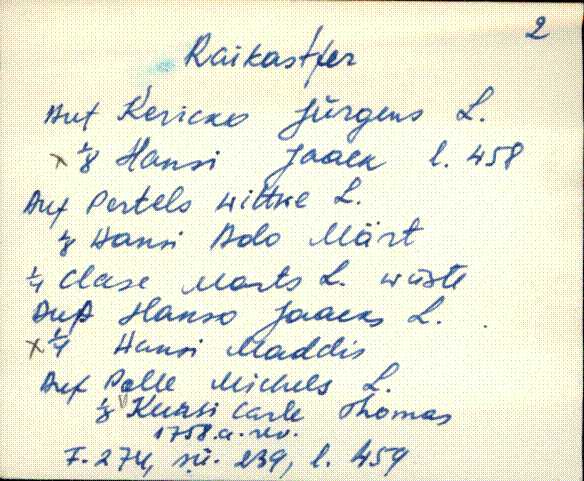 2
Raikastfer
Auf Kericko Jürgens L.
x 1/8 Hansi Jaack l. 458
Auf Pertels wittwe L.
1/8 Hansi Ado Märt
1/4 Clase Marts L. wüste
Auf Hanso Jaacks L.
x 1/4 Hansi Maddis
Auf Palle Michels L.
1/8 Kuersi Carle Thomas
1758.a. rev.
F. 274, sü. 239, l. 459